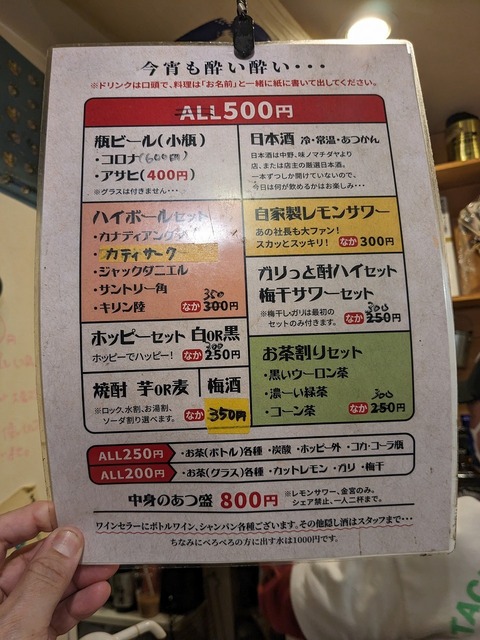 今宵も酔い酔い・・・
※ドリンクは口頭で、料理は「お名前」と一緒に紙に書いて出してください。
ALL500円
瓶ビール(小瓶)
・コロナ(600円)
・アサヒ(400円)
※グラスは付きません・・・
日本酒 冷・常温・あつかん
日本酒は中野、味ノマチダヤより
店、または店主の厳選日本酒。
一本ずつしか開けていないので、
今日は何が飲めるかはお楽しみ・・・
ハイボールセット
・カナディアンクラブ
・カティサーク
・ジャックダニエル
・サントリー角
・キリン陸
350
なか 300円
自家製レモンサワー
あの社長も大ファン!
スカッとスッキリ! なか 300円
ガリっと酎ハイセット
梅干サワーセット
※梅干しガリは最初の
セットのみ付きます。
300
なか 250円
ホッピーセット 白OR黒
ホッピーでハッピー!
300
なか 250円
お茶割りセット
・黒いウーロン茶
・濃〜い緑茶
・コーン茶
300
なか 250円
焼酎 芋OR麦
梅酒
※ロック、水割、お湯割、
ソーダ割り選べます。
なか 350円
ALL250円 ・お茶(ボトル)各種 ・炭酸 ・ホッピー外 ・コカ・コーラ瓶
ALL200円 ・お茶(グラス)各種 ・カットレモン ・ガリ ・梅干
中身のあつ盛 800円
※レモンサワー、金宮のみ。
シェア禁止、一人二杯まで。
ワインセラーにボトルワイン、シャンパン各種ございます。その他隠し酒はスタッフまで・・・
ちなみにべろべろの方に出す水は1000円です。